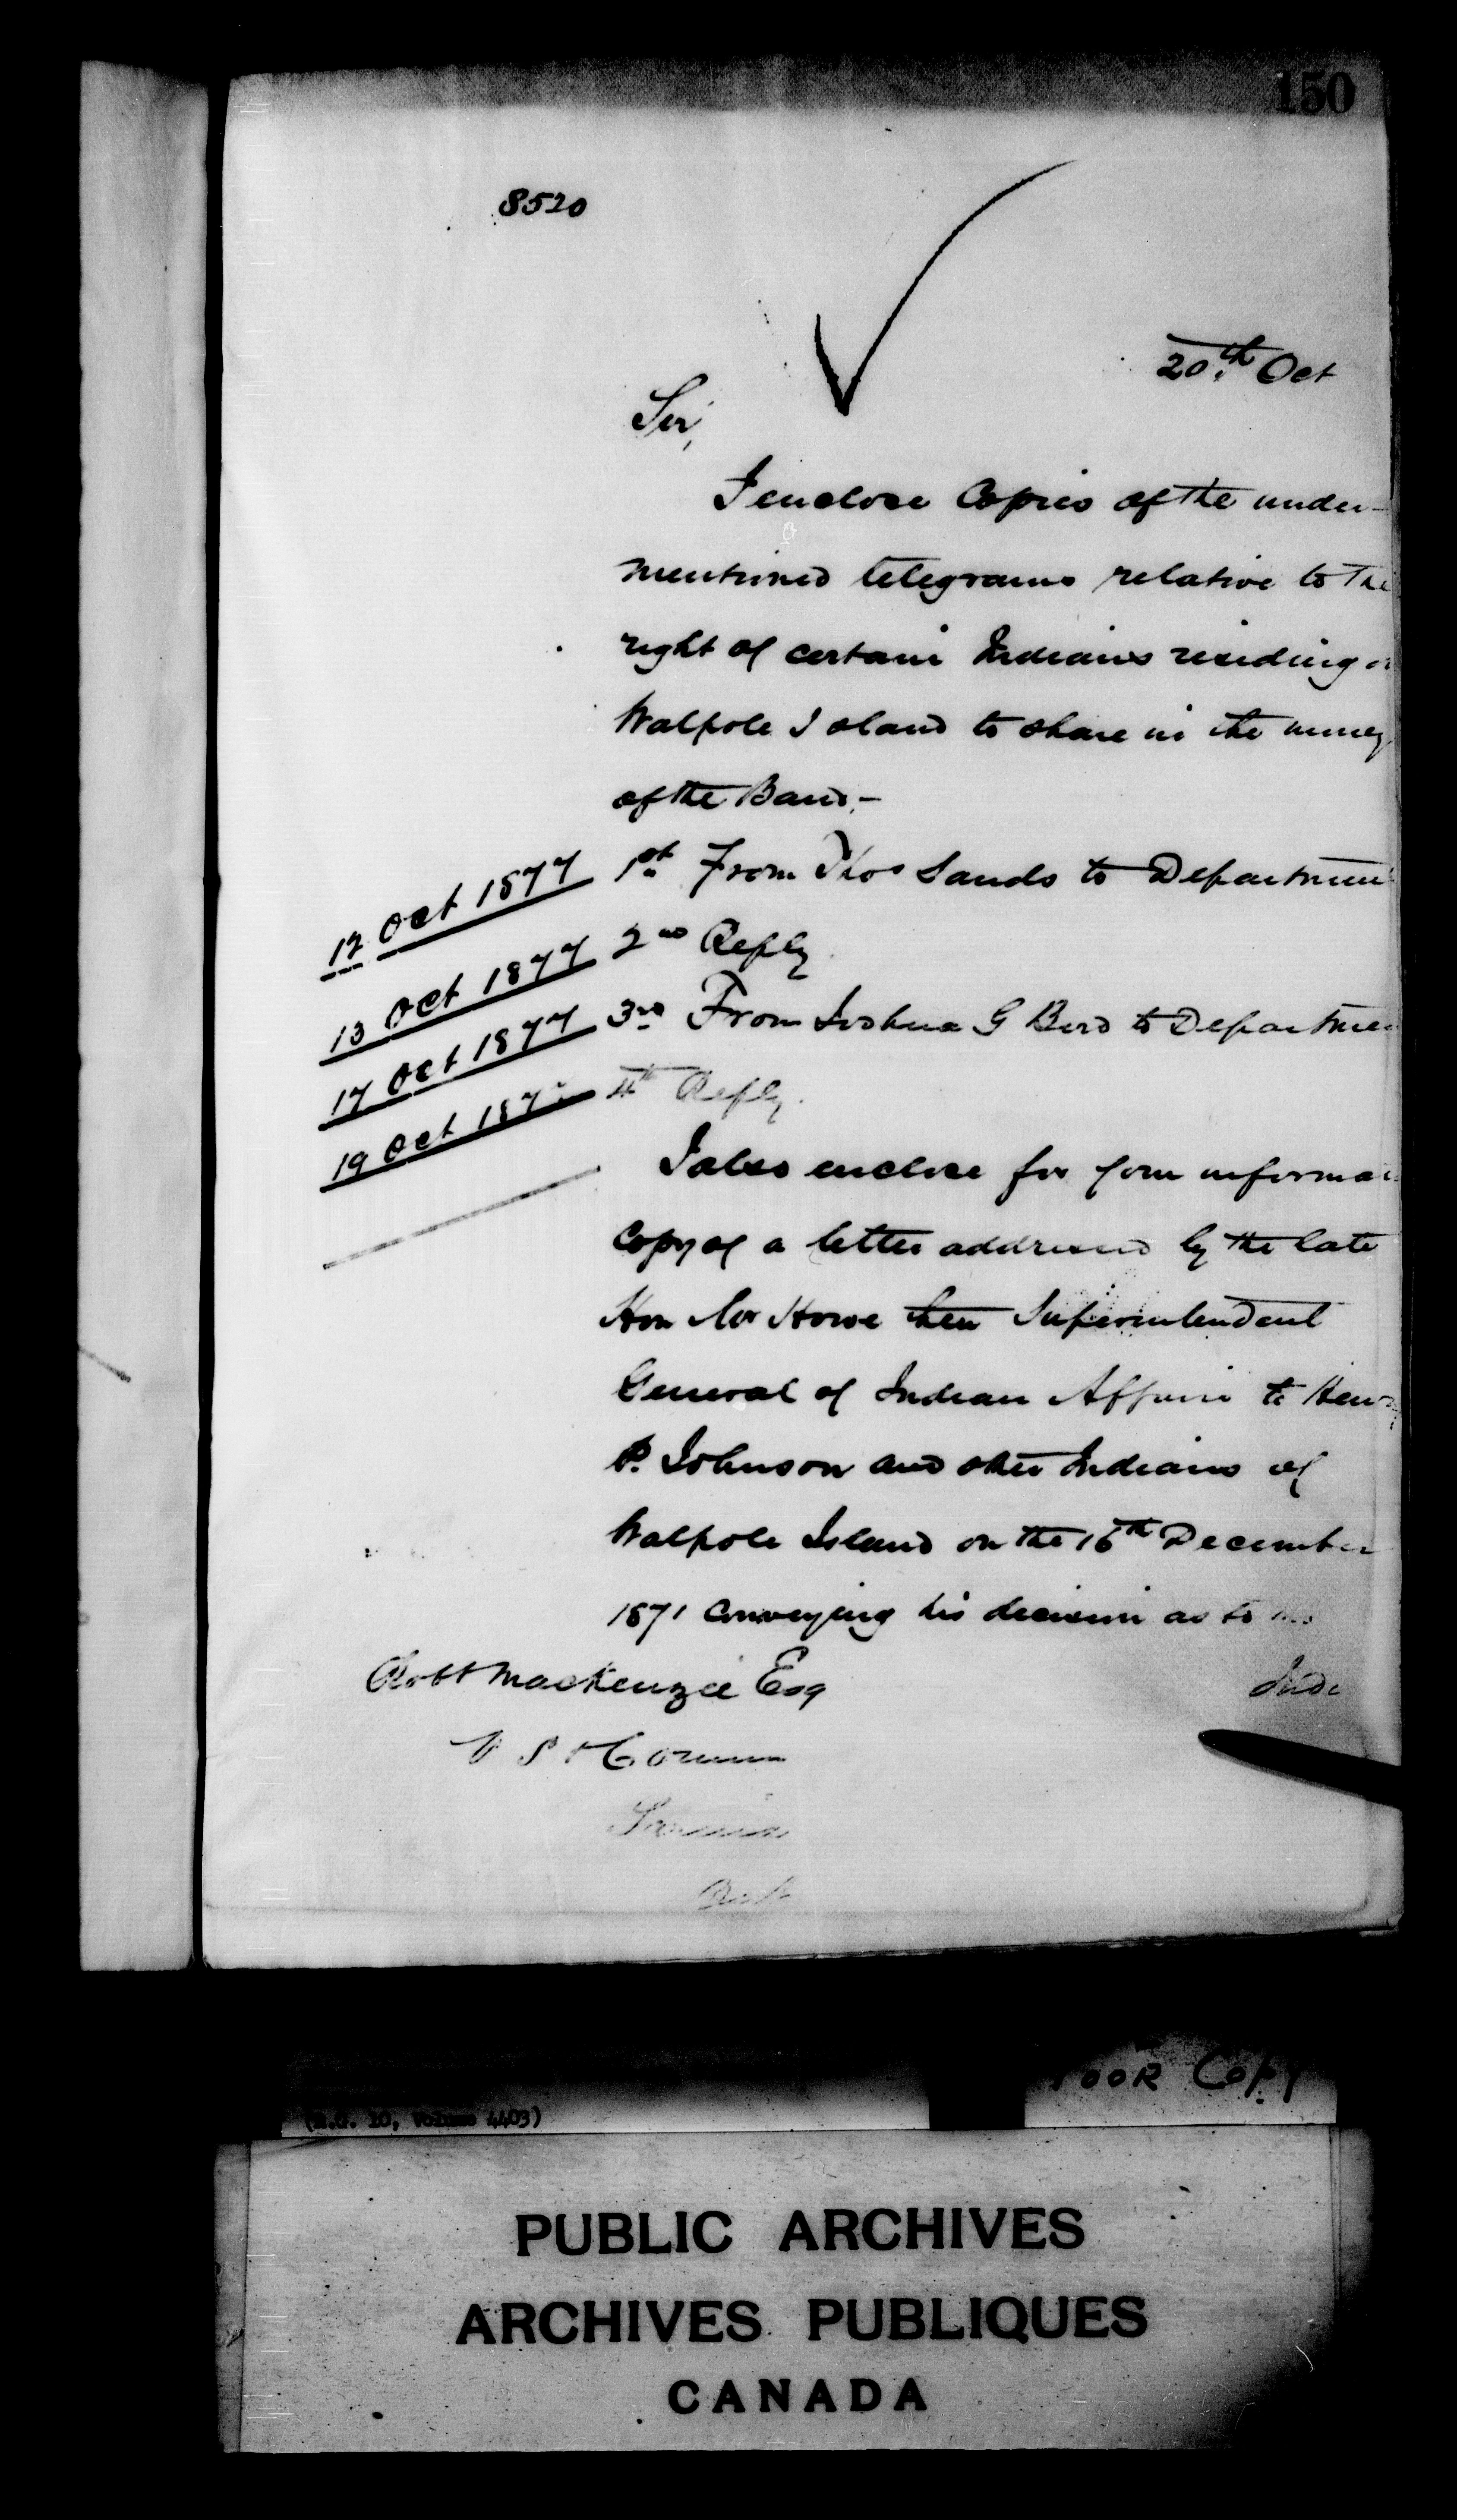 150
8520
20th Oct
Sir,
I enclose Copies of the under-
mentioned telegrams relative to the
right of certain Indians residing on
Walpole Island to share in the money
of the Band.-
12 Oct 1877 1st From Thos Sands to Departmen
13 Oct 1877 2nd Reply
17 Oct 1877 3rd From Joshua G Bird to Departmen
19 Oct 187 4th Reply.
I also enclose for your informa
Copy of a letter addressed by the late
Hon Mr Howe then Superintendent
General of Indian Affairs to Henry
P. Johnson and other Indians of
Walpole Island on the 16th December
1871 Conveying his decision as to
Robt Mackenzie Esq
Indi
V S & Comm
Sarnia
Ont
Poor Copy
(R.G. 10, Volume 4403)
PUBLIC ARCHIVES
ARCHIVES PUBLIQUES
CANADA